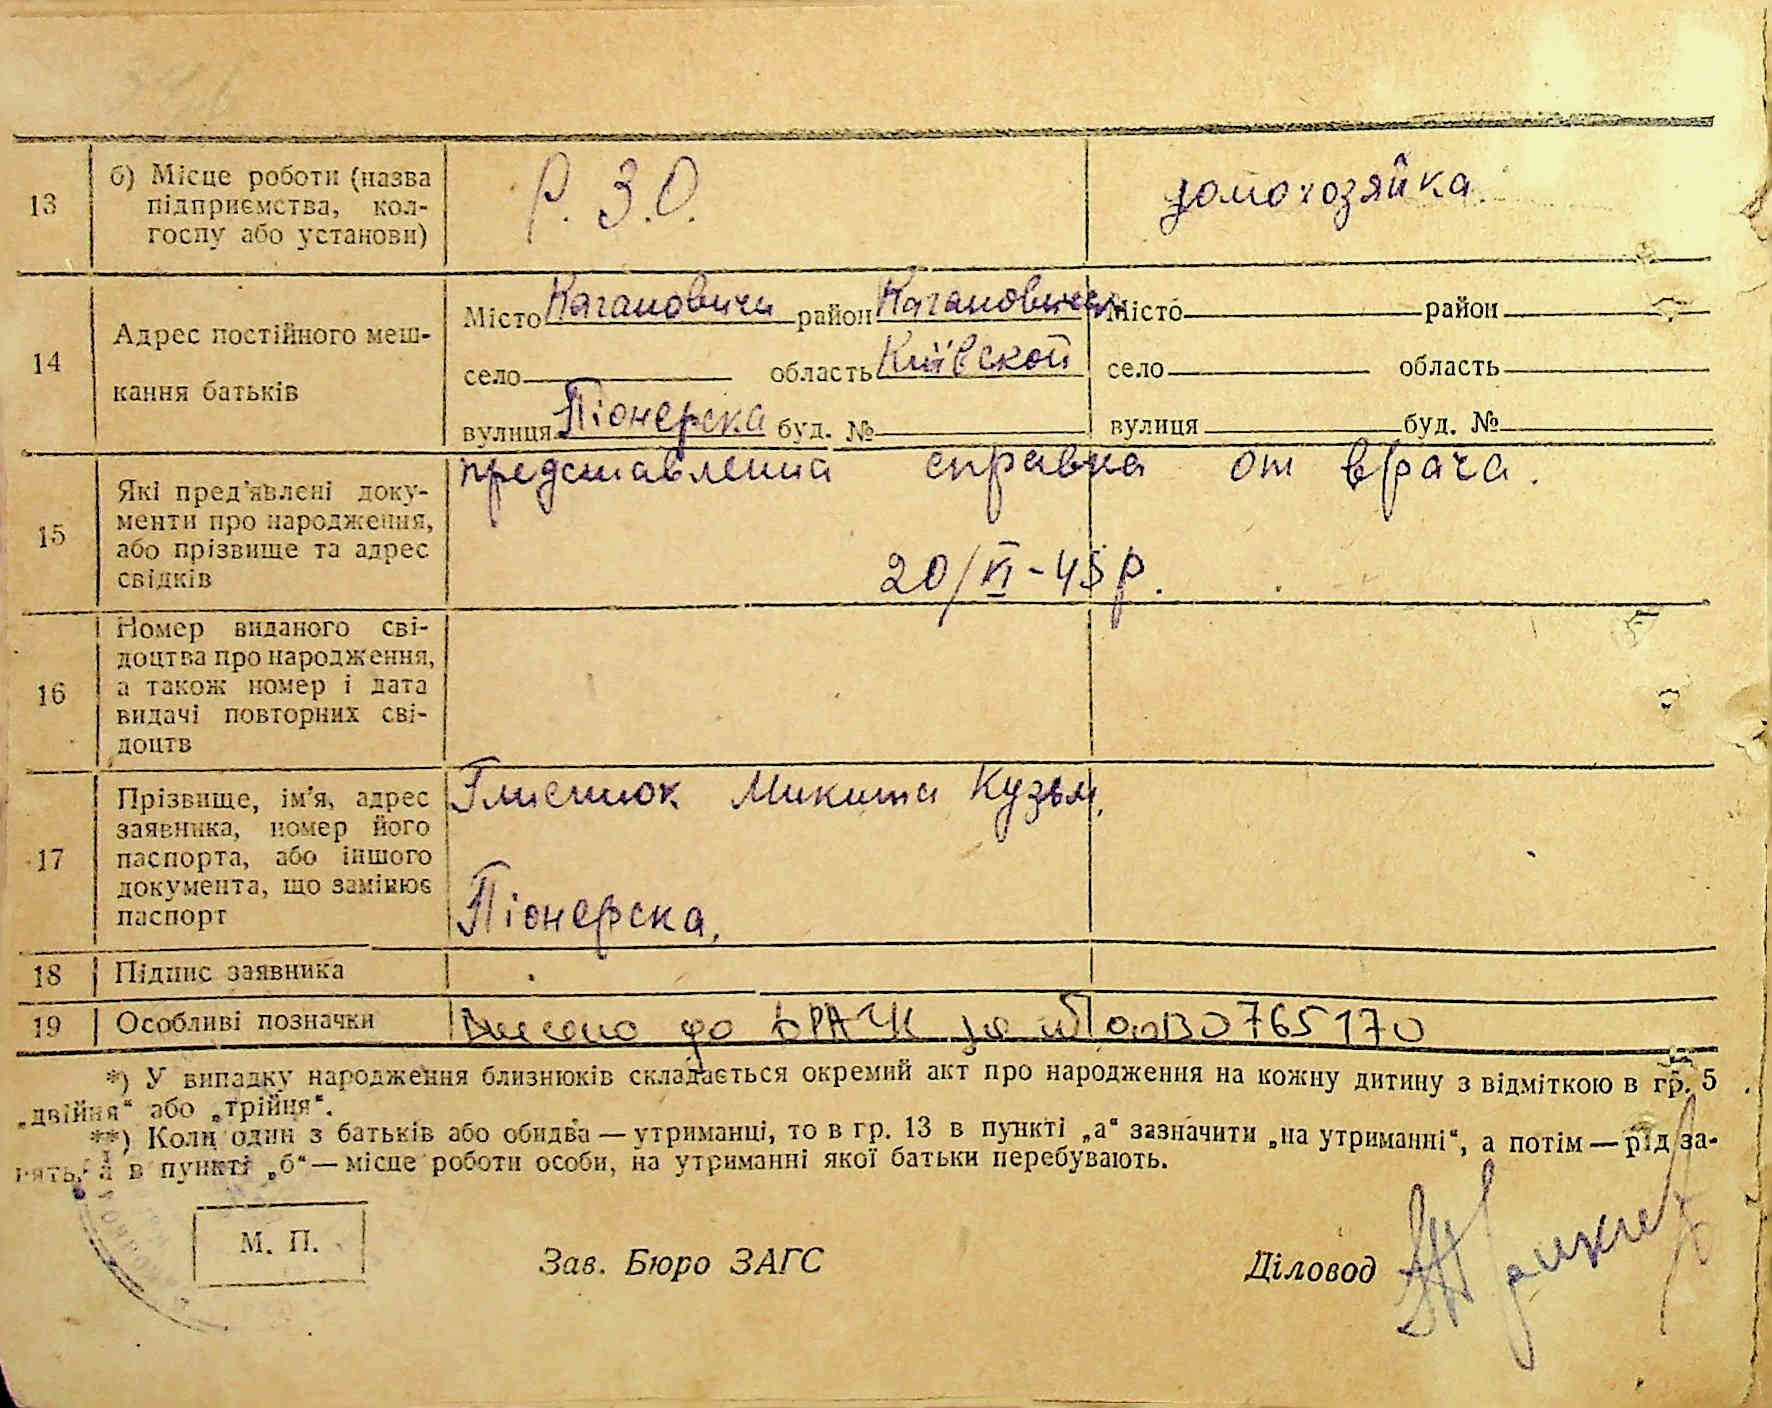 13 б) Місце роботи (назва
підприємства, кол-
госпу або установи)
Р. З.О.
домохозяйка.
14 Адрес постійного меш-
кання батьків
Місто Кагановичи район Кагановичск
село область Київской
вулиця Піонерска буд. №
Місто район
село область
вулиця буд. №
15 Які пред'явлені доку-
менти про народження,
або прізвище та адрес
свідків
представленна справка от врача.
20/VI-45р.
16 Номер виданого сві-
доцтва про народження,
а також номер і дата
видачі повторних сві-
доцтв
17 Прізвище, ім'я, адрес
заявника, номер його
паспорта, або іншого
документа, що замінює
паспорт
Микита Кузьм.
Піонерска,
18 Підпис заявника
19 Особливі позначки
Внесено до ДРАЦС за № 00130765170
*) У випадку народження близнюків складається окремий акт про народження на кожну дитину з відміткою в гр. 5
„двійня“ або „трійня“.
**) Коли один з батьків або обидва — утриманці, то в гр. 13 в пункті „а“ зазначити „на утриманні“, а потім — рід за-
нять, а в пункті „б“ — місце роботи особи, на утриманні якої батьки перебувають.
М. П.
Зав. Бюро ЗАГС
Діловод